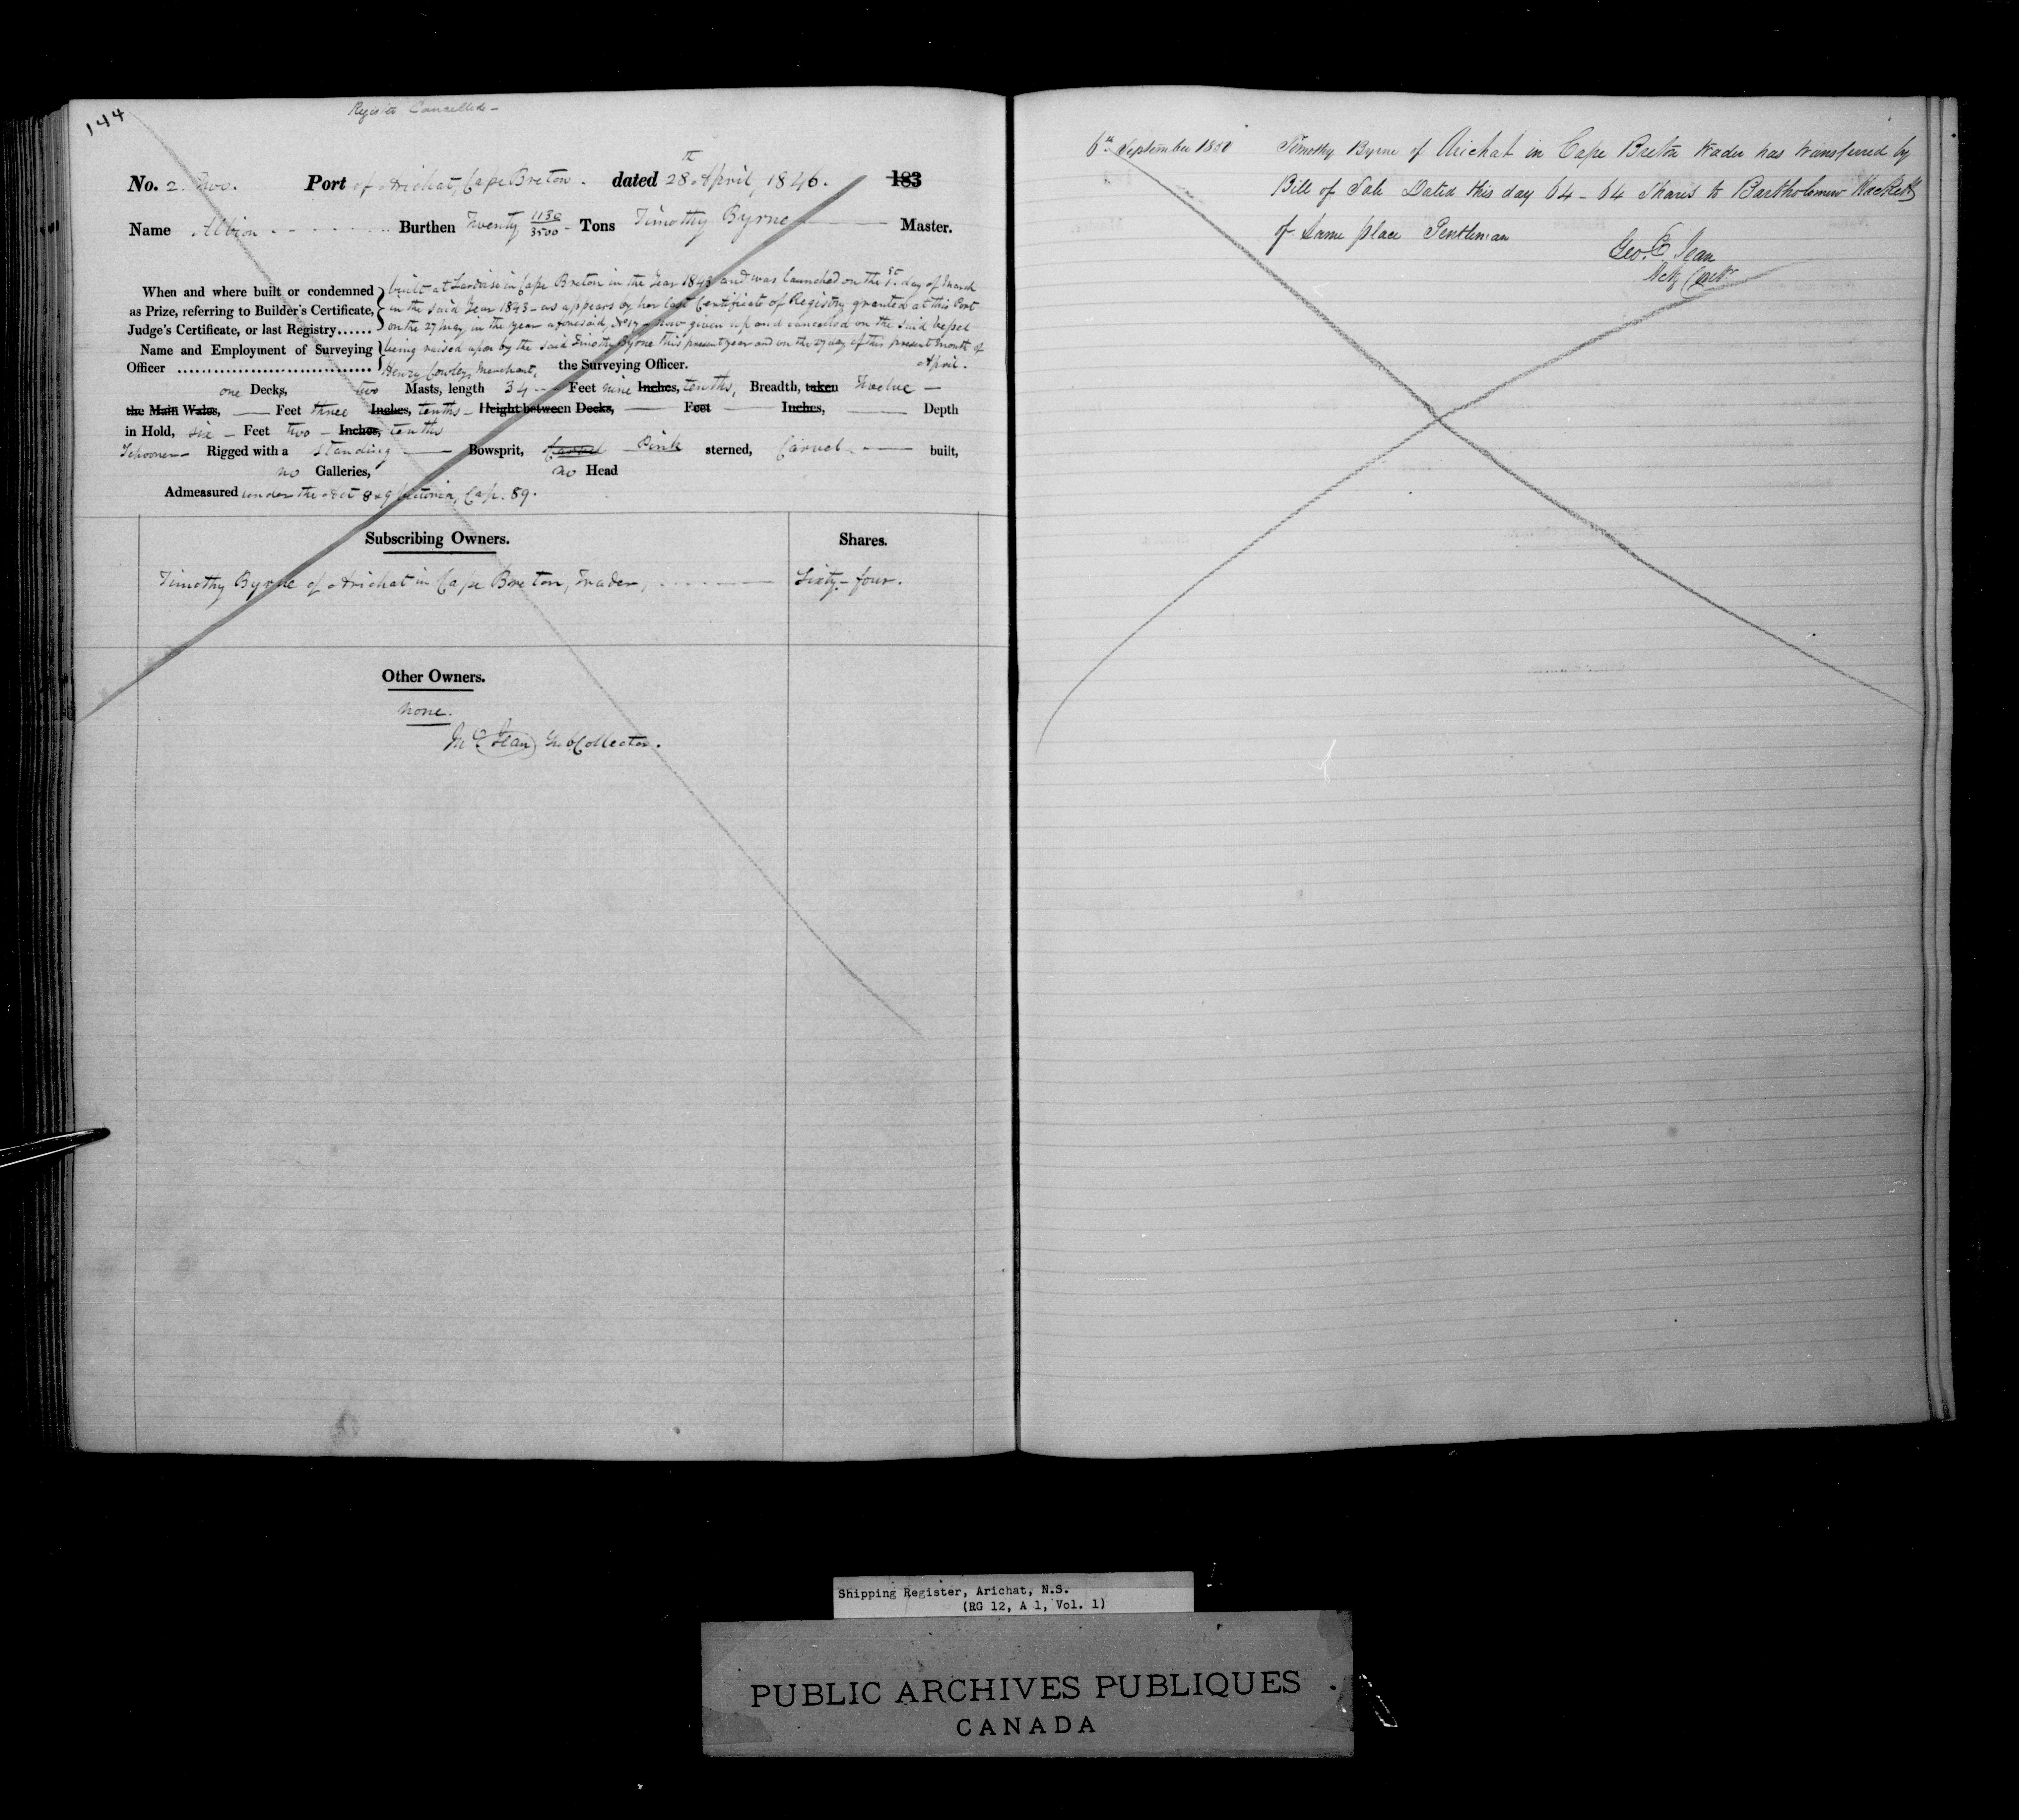 144
Register Cancelled -
No. 2. Two. Port of Arichat, Cape Breton. dated 28th April, 1846. 183
Name Albion Burthen Twenty 1130/3500 - Tons Timothy Byrne Master.
When and where built or condemned as Prize, referring to Builder's Certificate, Judge's Certificate, or last Registry......
built at in Cape Breton in the Year 1843 and was launched on the 1st. day of March
in the said Year 1843 - as appears by her last Certificate of Registry granted at this Port
on the 27 May in the year aforesaid, No 17 - now given up and cancelled on the said Vessel
being raised upon by the said Timothy Byrne this present year and on the 27 day of this present month of
April.
Name and Employment of Surveying Officer Henry Cowley, Merchant, the Surveying Officer.
one Decks, two Masts, length 34 Feet nine Inches, tenths, Breadth, taken Twelve —
the Main Wales, — Feet three Inches, tenths - Height between Decks, — Feet — Inches, — Depth
in Hold, six - Feet two - Inches, tenths
Schooner - Rigged with a Standing — Bowsprit, Carvel Pink sterned, Carvel — built,
no Galleries, no Head
Admeasured under the Act 8 & 9 Victoria, Cap. 89.
Subscribing Owners. Shares.
Timothy Byrne of Arichat in Cape Breton, Trader, Sixty - four.
Other Owners.
none.
Jean Collector.
6th September 1850 Timothy Byrne of Arichat in Cape Breton trader has transferred by
Bill of Sale Dated this day 64 - 64 Shares to Bartholomew Hackett
of same place Gentleman
Geo. E. Jean
Shipping Register, Arichat, N.S.
(RG 12, A 1, Vol. 1)
PUBLIC ARCHIVES PUBLIQUES
CANADA